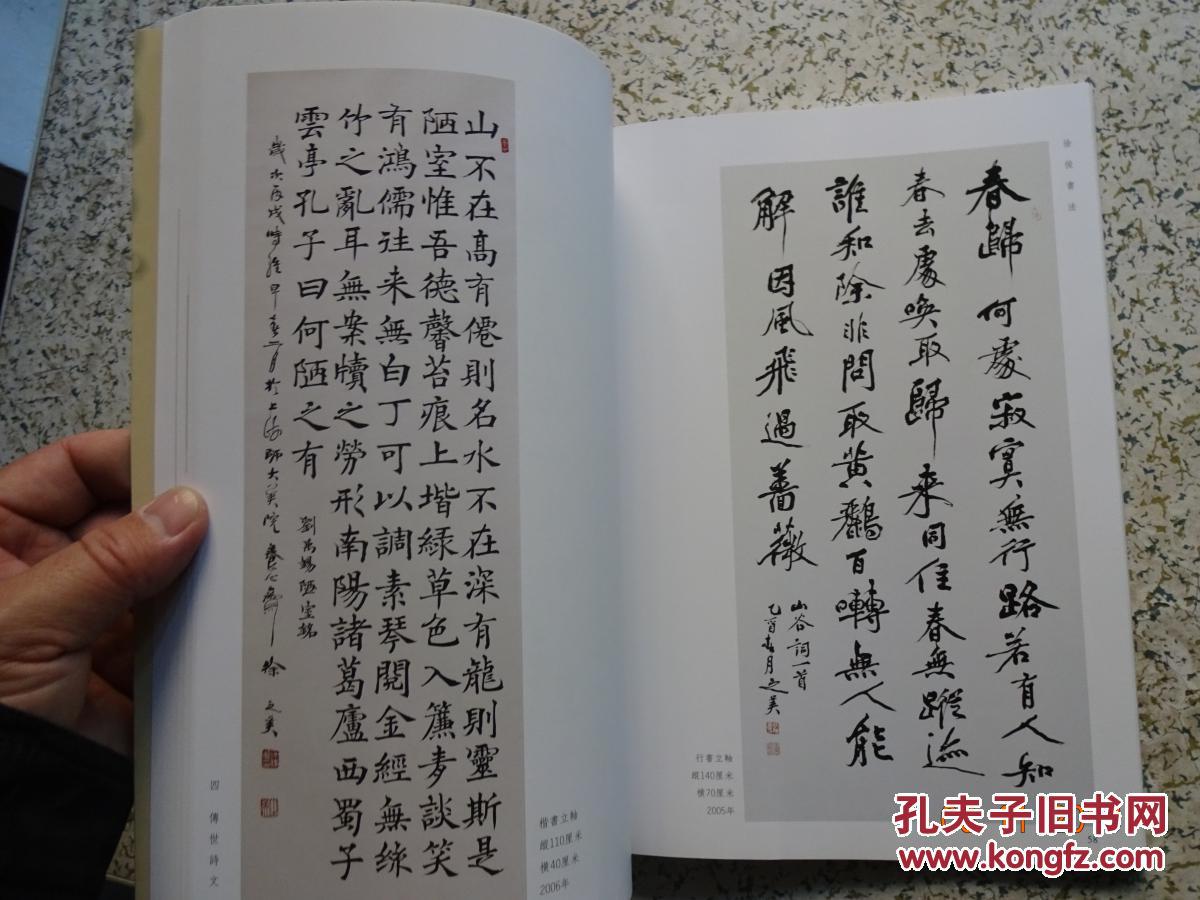 山不在高有僊則名水不在深有龍則靈斯是
陋室惟吾德馨苔痕上堦緑草色入簾青談笑
有鴻儒往来無白丁可以調素琴閱金經無絲
竹之亂耳無案牘之勞形南陽諸葛廬西蜀子
雲亭孔子曰何陋之有
劉禹錫陋室銘
歲次丙戌時維早春二月於上海師大美院養心齋徐之美
四 傳世詩文
楷書立軸
縱110厘米
橫40厘米
2006年
書法
春歸何處寂寞無行路若有人知
春去處喚取歸来同住春無蹤迹
誰知除非問取黄鸝百囀無人能
解因風飛過薔薇
山谷詞一首
乙酉春月之美
行書立軸
縱140厘米
橫70厘米
2005年
58
孔夫子旧书网
www.kongfz.com